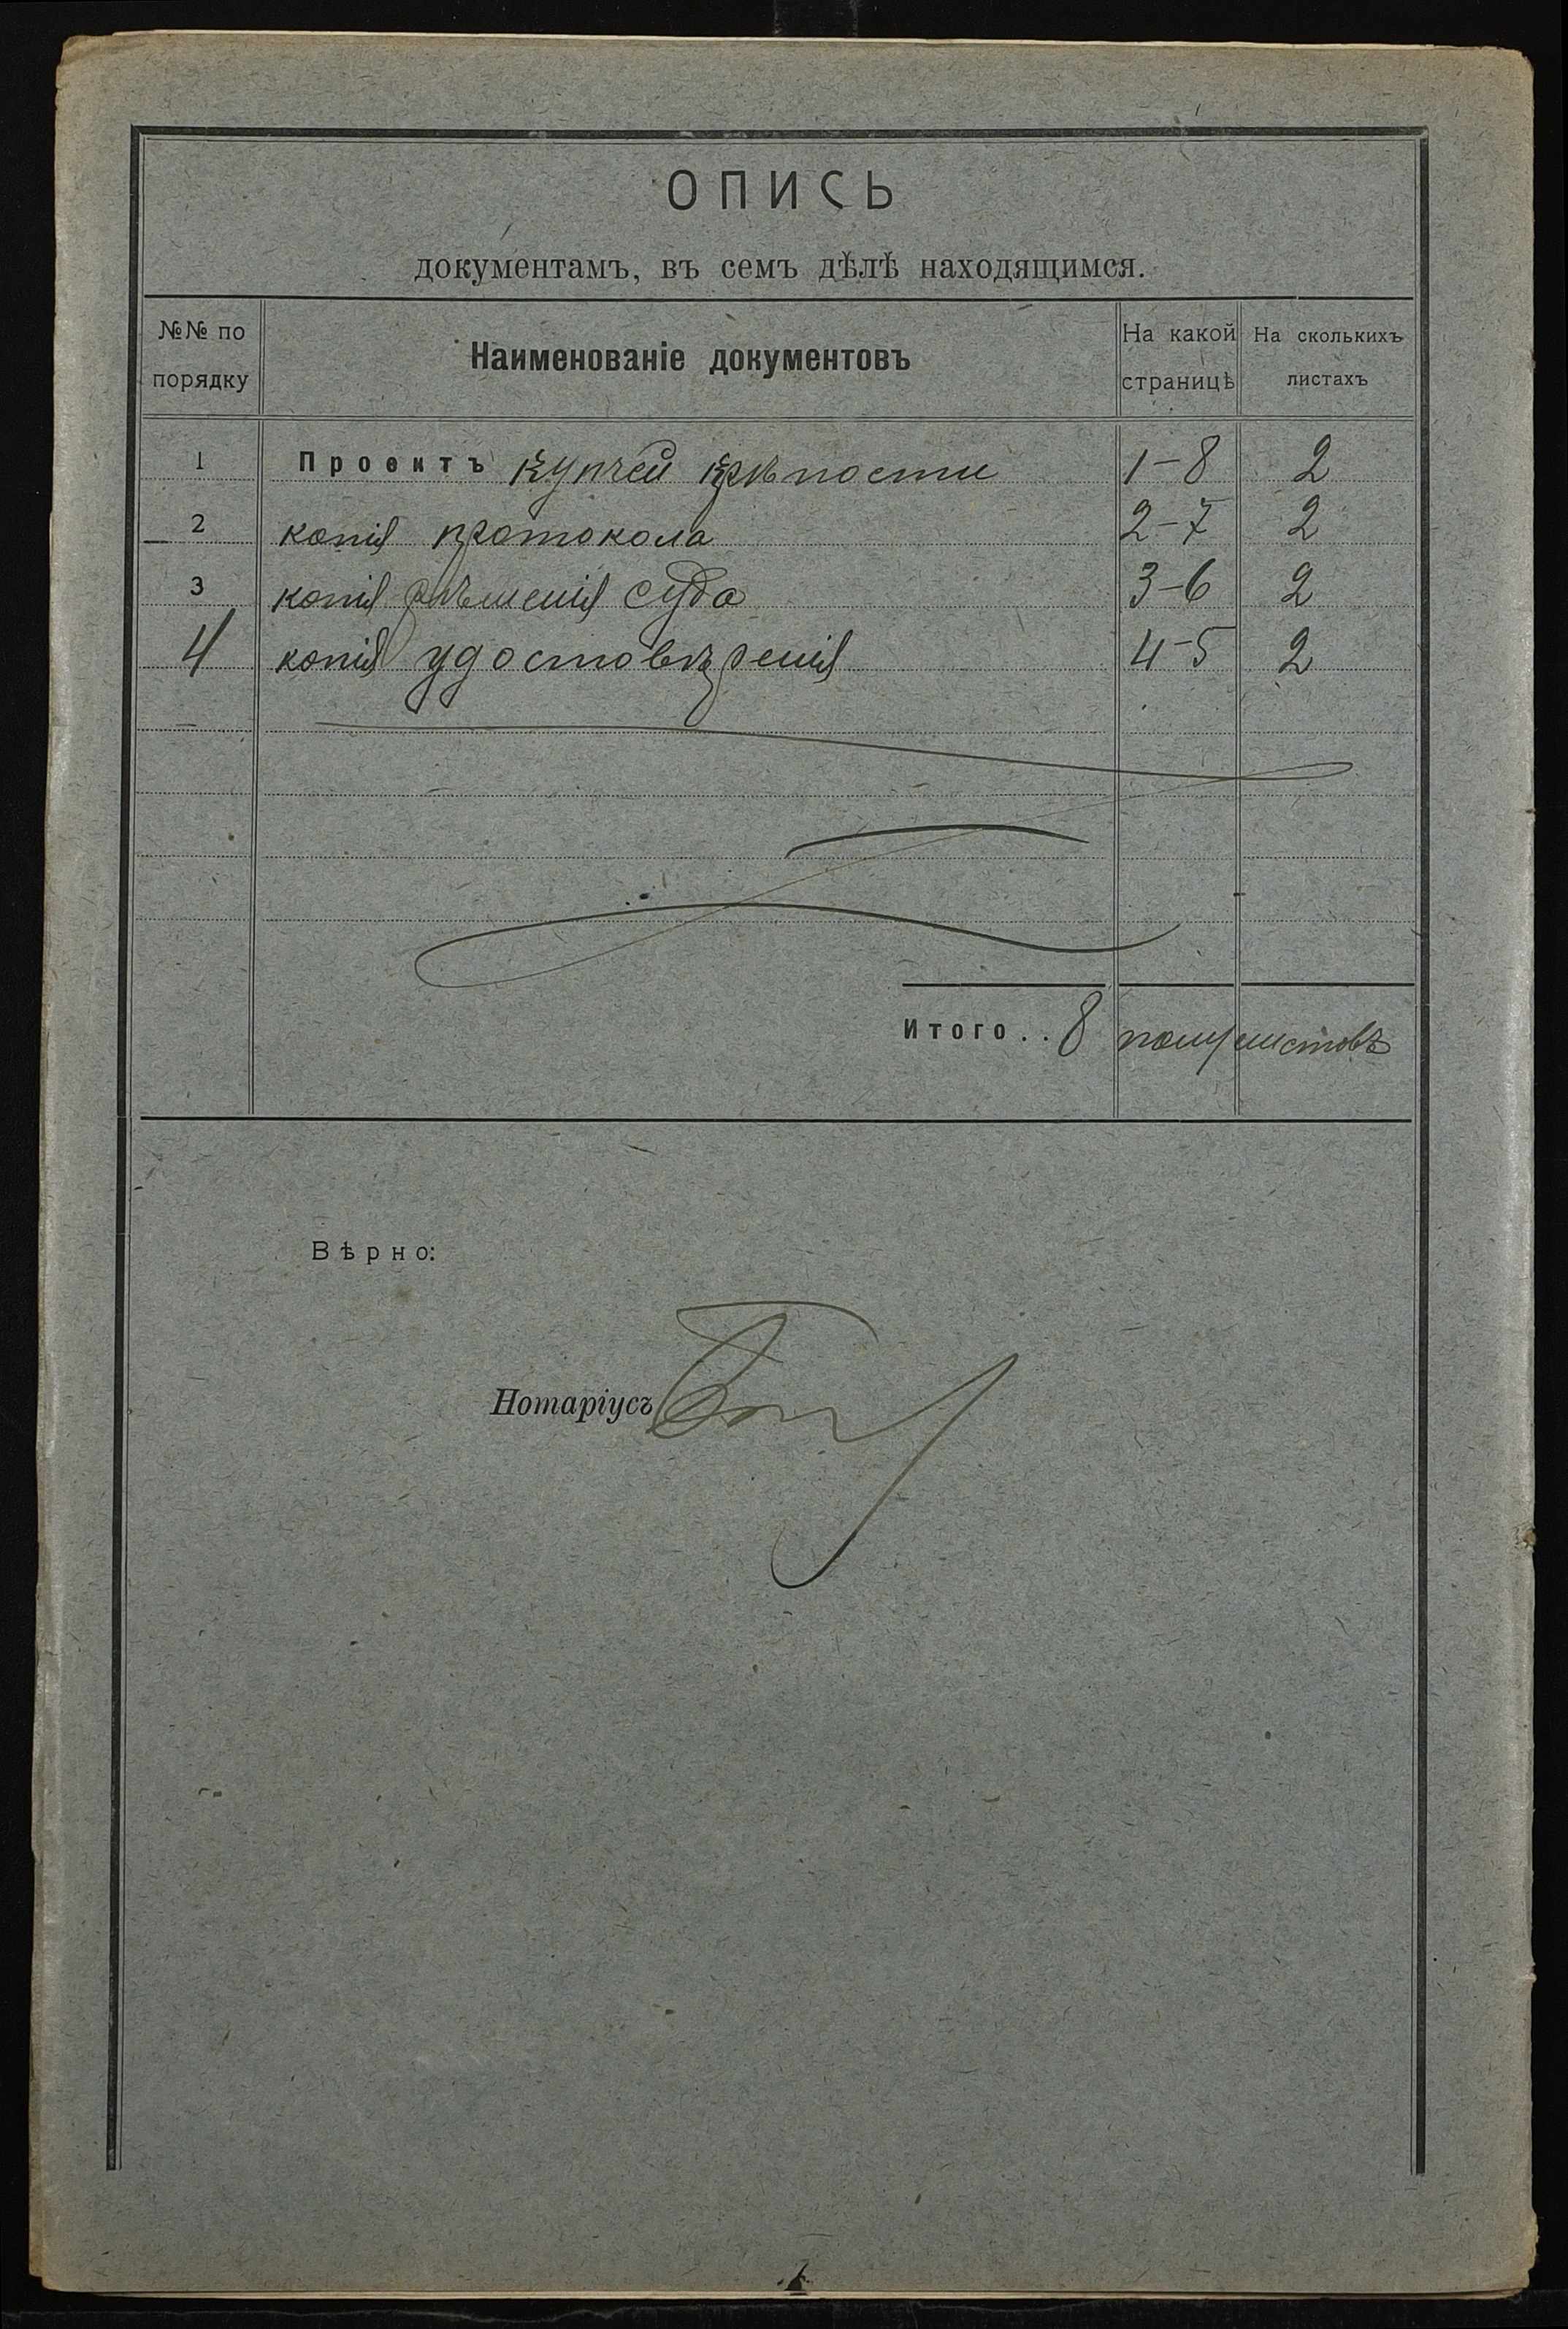 ОПИСЬ
документамъ, въ семъ дѣлѣ находящимся.
№№ по порядку Наименованіе документовъ На какой страницѣ На сколькихъ листахъ
1 Проектъ купчей крѣпости 1-8 2
2 копія протокола 2-7 2
3 копія рѣшенія суда 3-6 2
4 копія удостовѣренія 4-5 2
Итого.. 8 полулистовъ
Вѣрно:
Нотаріусъ